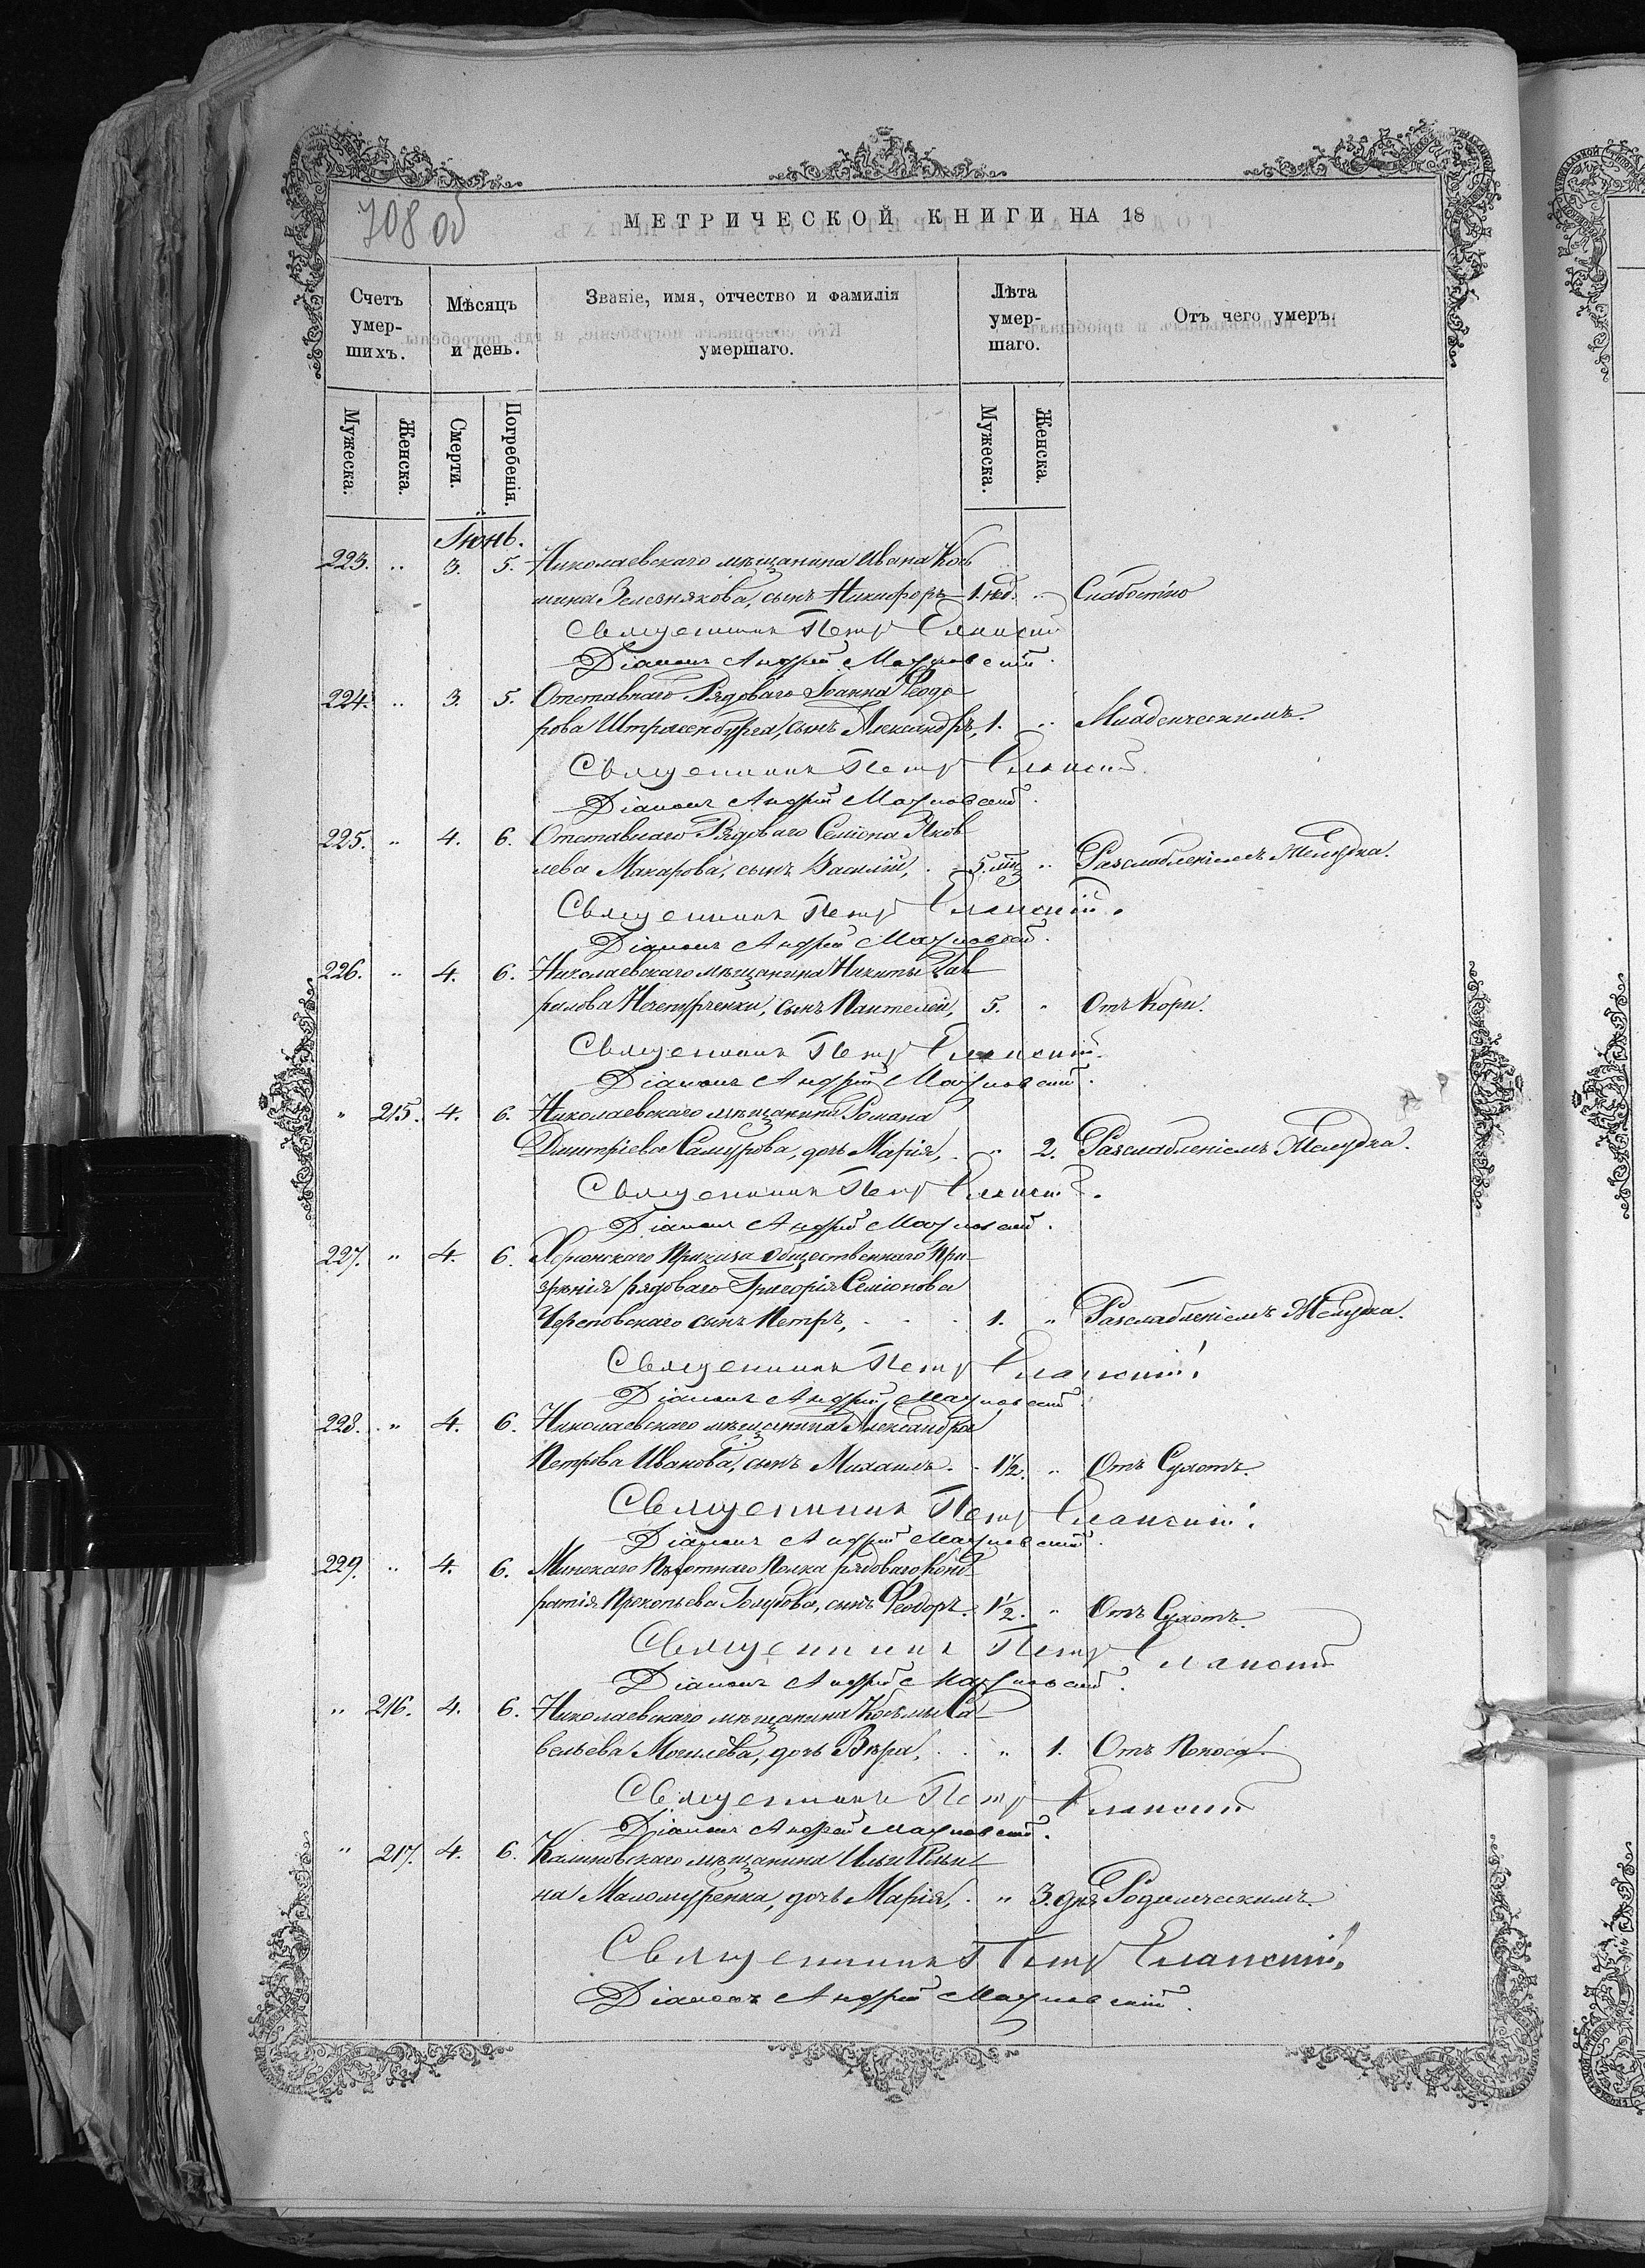 708 об
МЕТРИЧЕСКОЙ КНИГИ НА 18
Счетъ умер-шихъ.
Мѣсяцъ и день.
Званіе, имя, отчество и фамилія умершаго.
Лѣта умер-шаго.
Отъ чего умеръ.
Мужеска. Женска. Смерти. Погребенія. Мужеска. Женска.
Іюнь.
223. " 3. 5. Николаевскаго мѣщанина Ивана Козь
мина Зелезнякова, сынъ Никифоръ 1. нед. " Слабостію
Священникъ Петръ Еланскій
Діаконъ Андрей
224. " 3. 5. Отставнаго Рядоваго Іоанна Ѳеодо
рова Штрасенбурга, сынъ Александръ, 1. " Младенческимъ.
Священникъ Петръ Еланскій
Діаконъ Андрей
225. " 4. 6. Отставнаго Рядоваго Семіона Яков
лева Макарова, сынъ Василій, 5. мц " Разслабленіемъ Желудка.
Священникъ Петръ Еланскій.
Діаконъ Андрей
226. " 4. 6. Николаевскаго мѣщанина Никиты Гав
рилова Нечепуренки, сынъ Пантелей, 5. " Отъ Кори.
Священникъ Петръ Еланскій.
Діаконъ Андрей
" 215. 4. 6. Николаевскаго мѣщанина Романа
Димитріева Самурова, дочь Марія, " 2. Разслабленіемъ Желудка.
Священникъ Петръ Еланскій.
Діаконъ Андрей
227. " 4. 6. Херсонскаго Приказа Общественнаго При
зрѣнія рядоваго Григорія Семіонова
Череповскаго сынъ Петръ, 1. " Разслабленіемъ Желудка.
Священникъ Петръ Еланскій.
Діаконъ Андрей
228. " 4. 6. Николаевскаго мѣщанина Александра
Петрова Иванова, сынъ Михаилъ. 1½. " Отъ Сухотъ.
Священникъ Петръ Еланскій.
Діаконъ Андрей
229. " 4. 6. Минскаго Пѣхотнаго Полка рядоваго Конд
ратія Прокопьева Голубова, сынъ Ѳеодоръ. ½. " Отъ Сухотъ.
Священникъ Петръ Еланскій
Діаконъ Андрей
" 216. 4. 6. Николаевскаго мѣщанина Косьмы Са
вельева Могилёва, дочь Вѣра, " 1. Отъ Поноса.
Священникъ Петръ Еланскій
Діаконъ Андрей
" 217. 4. 6. мѣщанина Ильи Ильи
на дочь Марія, " 3. дня Родимческимъ.
Священникъ Петръ Еланскій.
Діаконъ Андрей